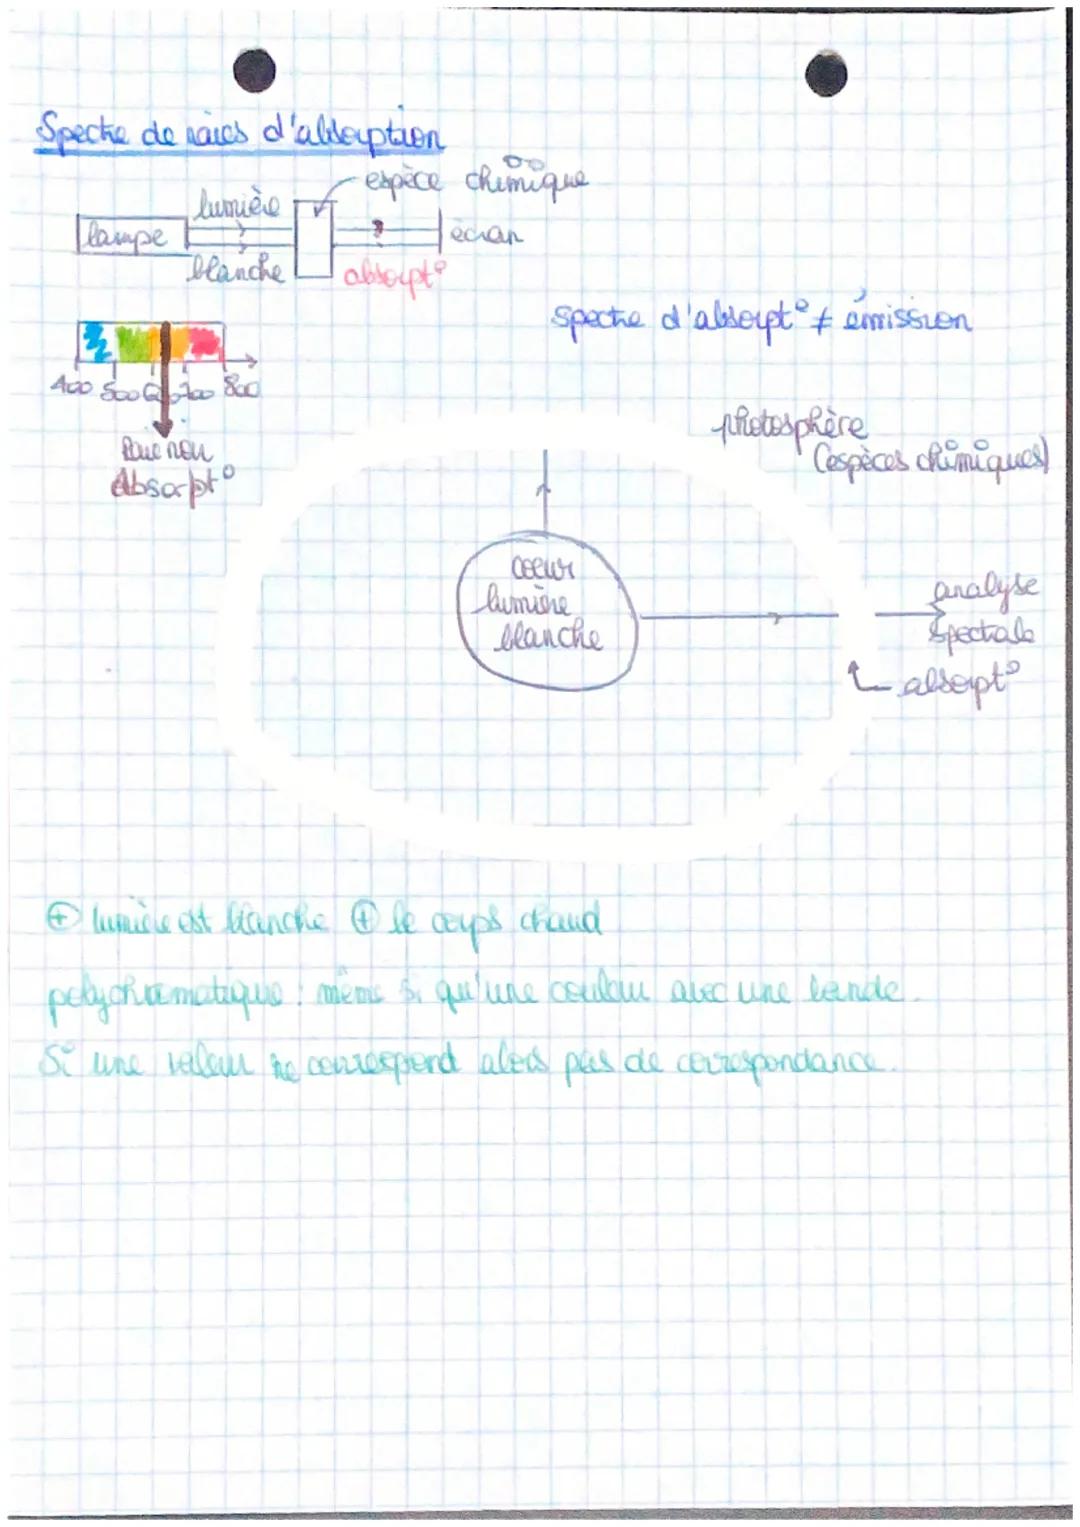 Spectre de raies d'absorption
espèce chimique
lumière
lampe
écran
blanche
absorpt°
spectre d'absorpt° ≠ émission
400 500 600 700 800
Raie noir
Absorpt°
photosphère
(espèces chimiques)
coeur
lumière
blanche
analyse
spectrale
absorpt°
⊕ lumière est blanche ⊕ le corps chaud
polychromatique : même si qu'une couleur avec une bande.
Si une valeur ne correspond alors pas de correspondance.